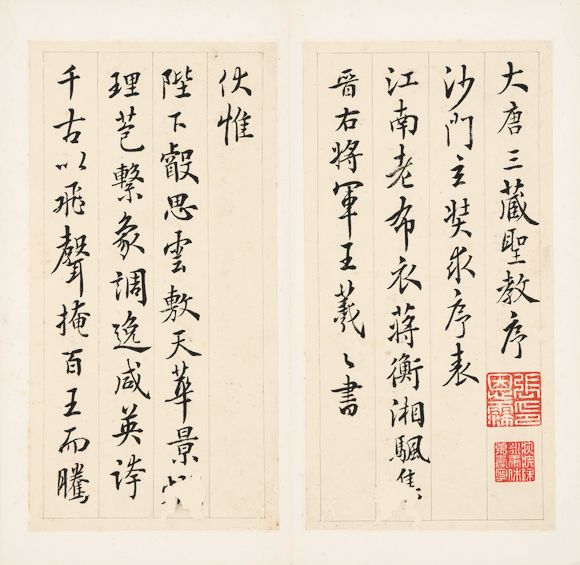 大唐三藏聖教序
沙門玄奘求序表
江南老布衣蔣衡湘颿隹
晉右將軍王羲之書
伏惟
陛下叡思雲敷天華景
理苞繫象調逸咸英誇
千古以飛聲掩百王而騰